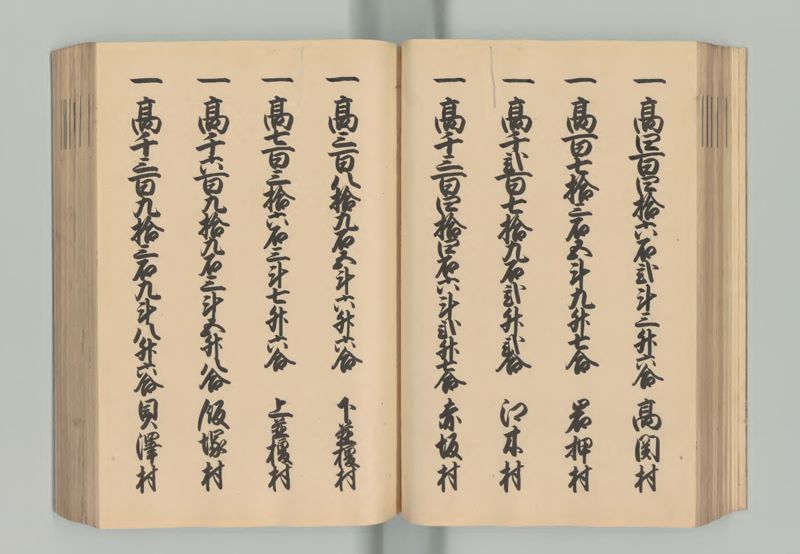 一高四百四拾六石弐斗三升六合 高関村
一高百七拾三石五斗九升七合 岩押村
一高千弐百七拾九石弐升弐合 江木村
一高千三百四拾四石六斗弐升七合 赤坂村
一高三百八拾九石五斗六升六合 下並榎村
一高七百三拾六石三斗七升六合 上並榎村
一高千六百九拾九石三斗五升八合 飯塚村
一高千三百九拾三石九斗八升六合 貝澤村